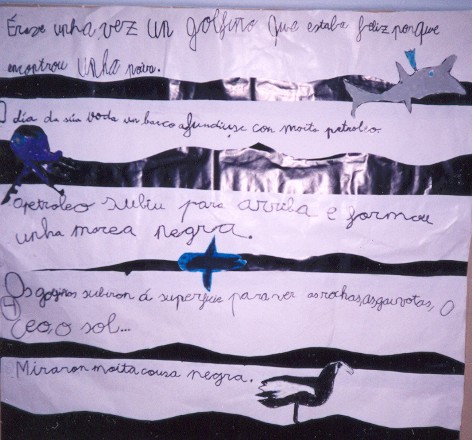 Érase unha vez un golfiño que estaba feliz porque
encontrou unha noiva.
O día da súa voda un barco afundiuse con moito petroleo.
O petroleo subiu para arriba e formou
unha marea negra.
Os golfiños subiron á superficie para ver as rochas, as gaivotas, O
ceo, o sol...
Miraron moita cousa negra.